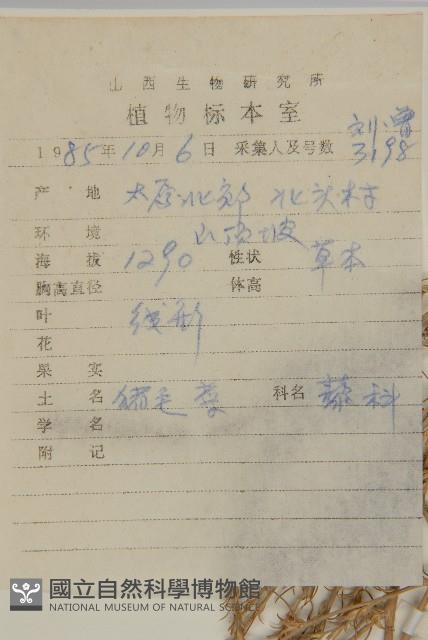 山西生物研究所
植物标本室
1985年10月6日 采集人及号数 刘 曾 3198
产地 太原北郊 北头村
环境 山顶坡
海拔 1290 性状 草本
胸高直径 体高
叶 线形
花
果实
土名 猪毛菜 科名 藜科
学名
附记
國立自然科學博物館
NATIONAL MUSEUM OF NATURAL SCIENCE